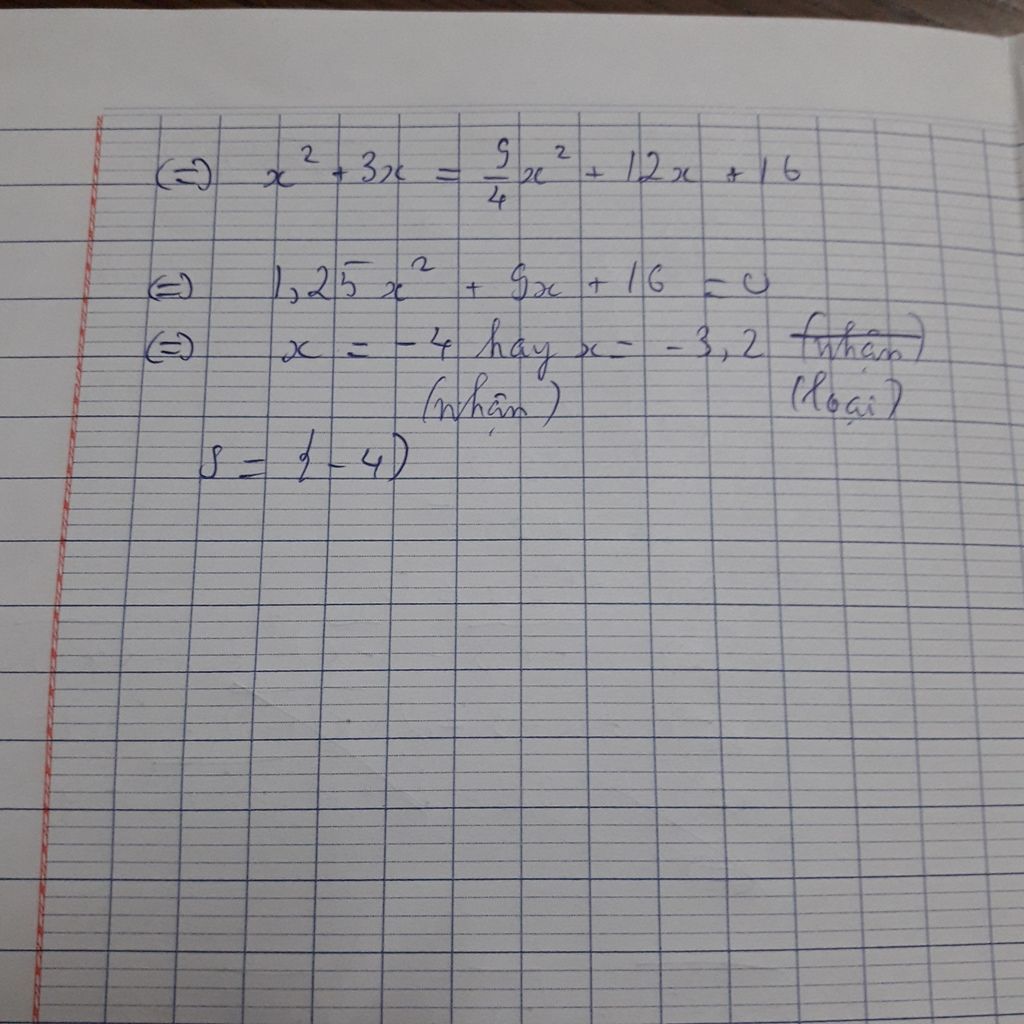 (=) x² + 3x = 9/4 x² + 12x + 16
(=) 1,25 x² + 9x + 16 = 0
(=) x = -4 hay x = -3,2 (nhận)
(nhận) (loại)
S = {-4}